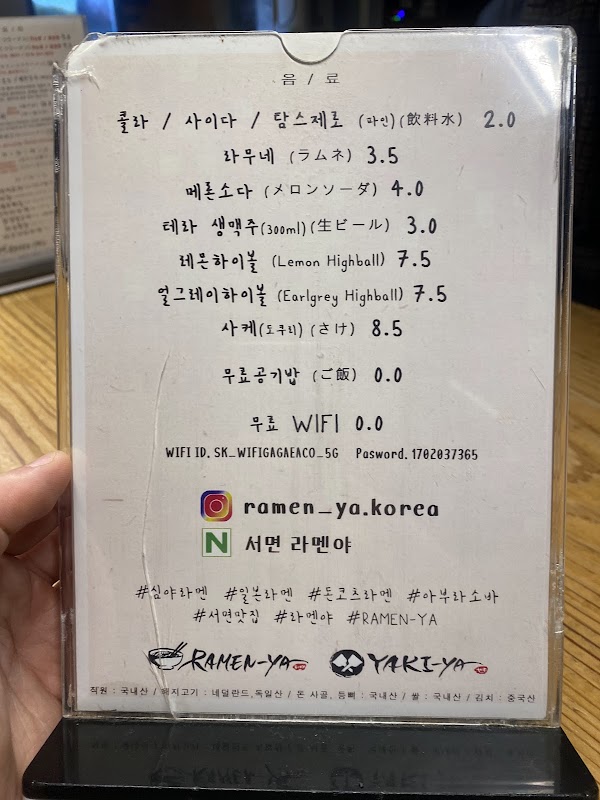 음 / 료
콜라 / 사이다 / 탐스제로 (파인)(飲料水) 2.0
라무네 (ラムネ) 3.5
메론소다 (メロンソーダ) 4.0
테라 생맥주(300ml)(生ビール) 3.0
레몬하이볼 (Lemon Highball) 7.5
얼그레이하이볼 (Earlgrey Highball) 7.5
사케(도쿠리) (さけ) 8.5
무료공기밥 (ご飯) 0.0
무료 WIFI 0.0
WIFI ID. SK_WIFIGAGAEACO_5G Pasword. 1702037365
ramen_ya.korea
N 서면 라멘야
#심야라멘 #일본라멘 #돈코츠라멘 #아부라소바
#서면맛집 #라멘야 #RAMEN-YA
RAMEN-YA YAKI-YA
직원 : 국내산 / 돼지고기 : 네덜란드,독일산 / 돈 사골, 등뼈 : 국내산 / 쌀 : 국내산 / 김치 : 중국산